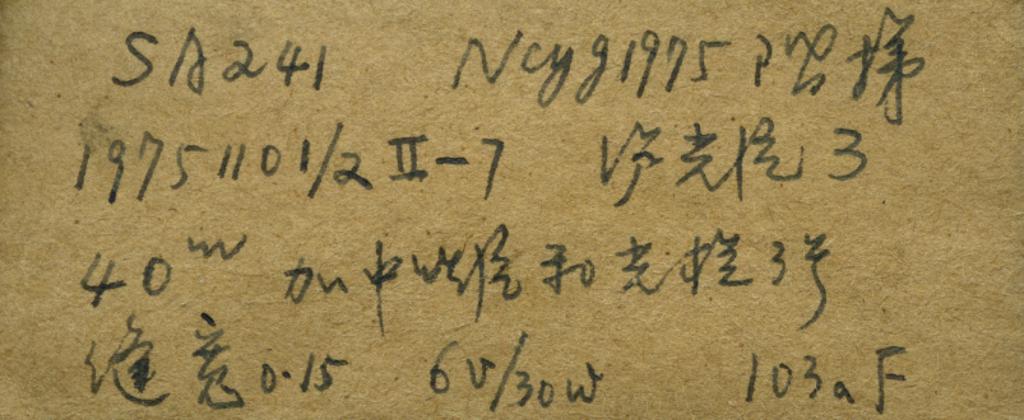 SA241 NCyg1975 阶梯
1975 1101/2 II-7 滤光 3
40m 加中 和光 3号
缝宽0.15 6V/30W 103aF